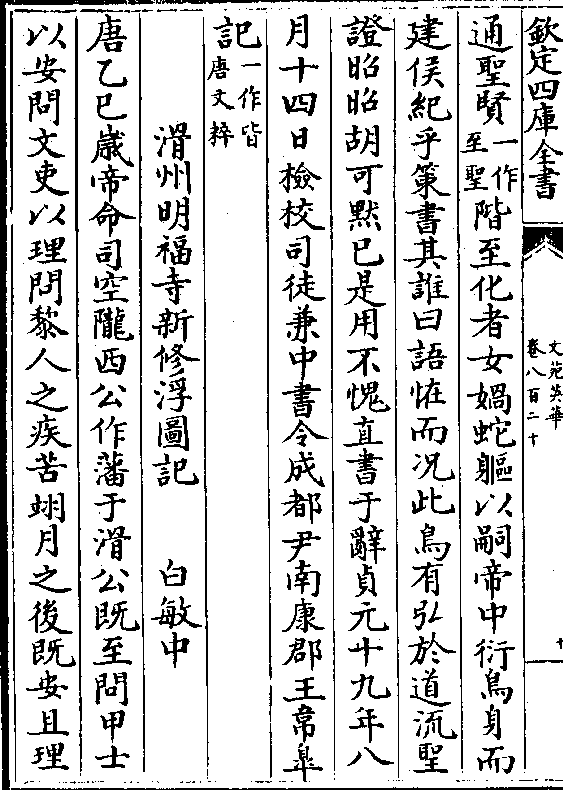 欽定四庫全書
文苑英華
卷八百二十
十
通聖賢一作至聖階至化者女媧蛇軀以嗣帝中衍鳥身而
建侯紀乎策書其誰曰語恠而况此鳥有弘於道流聖
證昭昭胡可黙已是用不愧直書于辭貞元十九年八
月十四日檢校司徒兼中書令成都尹南康郡王韋臯
記一作皆唐文粹
滑州明福寺新修浮圖記 白敏中
唐乙巳嵗帝命司空隴西公作藩于滑公既至問甲士
以安問文吏以理問黎人之疾苦翊月之後既安且理